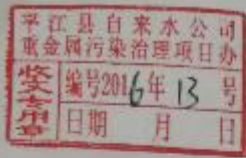 平江县自来水公司
重金属污染治理项目办
收文专用章
编号2016年13号
日期 月 日